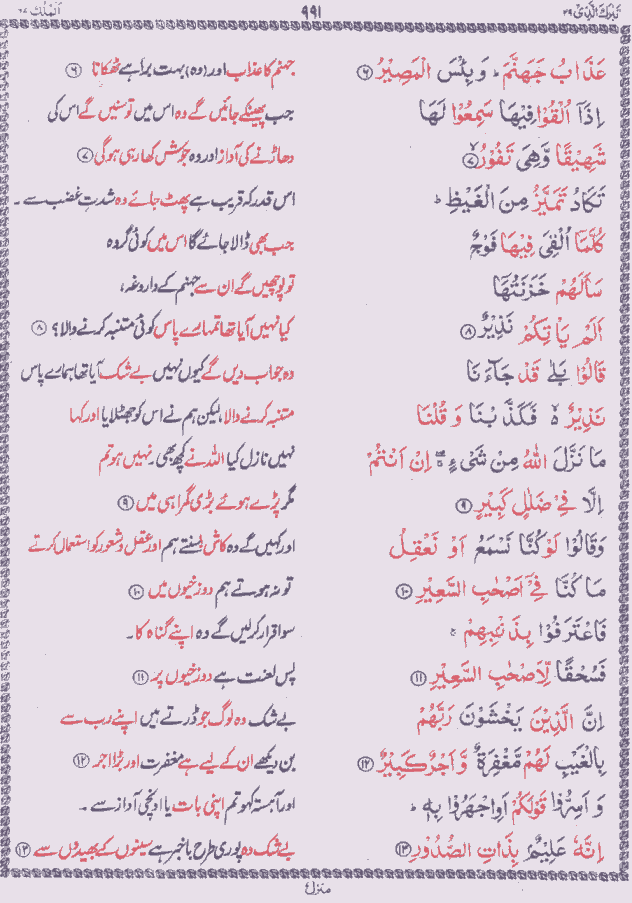 تَبٰرَكَ الَّذِىْ ٢٩ ٩٩١ اَلْمُلْك ٦٧
عَذَابُ جَهَنَّمَ ؕ وَ بِئْسَ الْمَصِيْرُ ﴿٦﴾ جہنم کا عذاب اور (وہ) بہت برا ہے ٹھکانا ﴿٦﴾
اِذَاۤ اُلْقُوْا فِيْهَا سَمِعُوْا لَهَا جب پھینکے جائیں گے وہ اس میں تو سنیں گے اس کی
شَهِيْقًا وَّهِىَ تَفُوْرُ ﴿٧﴾ دھاڑنے کی آواز اور وہ جوش کھا رہی ہوگی ﴿٧﴾
تَكَادُ تَمَيَّزُ مِنَ الْغَيْظِ ؕ اس قدر کہ قریب ہے پھٹ جائے وہ شدتِ غضب سے ۔
كُلَّمَاۤ اُلْقِىَ فِيْهَا فَوْجٌ جب بھی ڈالا جائے گا اس میں کوئی گروہ
سَاَلَهُمْ خَزَنَتُهَاۤ تو پوچھیں گے ان سے جہنم کے داروغہ،
اَلَمْ يَاْتِكُمْ نَذِيْرٌ ﴿٨﴾ کیا نہیں آیا تھا تمہارے پاس کوئی متنبہ کرنے والا؟ ﴿٨﴾
قَالُوْا بَلٰى قَدْ جَآءَنَا وہ جواب دیں گے کیوں نہیں بے شک آیا تھا ہمارے پاس
نَذِيْرٌ ۙ۬ فَكَذَّبْنَا وَ قُلْنَا متنبہ کرنے والا، لیکن ہم نے اس کو جھٹلایا اور کہا
مَا نَزَّلَ اللّٰهُ مِنْ شَىْءٍ ۖۚ اِنْ اَنْتُمْ نہیں نازل کیا اللہ نے کچھ بھی۔ نہیں ہو تم
اِلَّا فِىْ ضَلٰلٍ كَبِيْرٍ ﴿٩﴾ مگر پڑے ہوئے بڑی گمراہی میں ﴿٩﴾
وَقَالُوْا لَوْ كُنَّا نَسْمَعُ اَوْ نَعْقِلُ اور کہیں گے وہ کاش! سنتے ہم اور عقل و شعور کو استعمال کرتے
مَا كُنَّا فِىْۤ اَصْحٰبِ السَّعِيْرِ ﴿١٠﴾ تو نہ ہوتے ہم دوزخیوں میں ﴿١٠﴾
فَاعْتَرَفُوْا بِذَنْۢبِهِمْ ۚ سو اقرار کرلیں گے وہ اپنے گناہ کا۔
فَسُحْقًا لِّاَصْحٰبِ السَّعِيْرِ ﴿١١﴾ پس لعنت ہے دوزخیوں پر ﴿١١﴾
اِنَّ الَّذِيْنَ يَخْشَوْنَ رَبَّهُمْ بے شک وہ لوگ جو ڈرتے ہیں اپنے رب سے
بِالْغَيْبِ لَهُمْ مَّغْفِرَةٌ وَّ اَجْرٌ كَبِيْرٌ ﴿١٢﴾ بن دیکھے ان کے لیے ہے مغفرت اور بڑا اجر ﴿١٢﴾
وَ اَسِرُّوْا قَوْلَكُمْ اَوِ اجْهَرُوْا بِهٖ ؕ اور آہستہ کہو تم اپنی بات یا اونچی آواز سے ۔
اِنَّهٗ عَلِيْمٌۢ بِذَاتِ الصُّدُوْرِ ﴿١٣﴾ بے شک وہ پوری طرح باخبر ہے سینوں کے بھیدوں سے ﴿١٣﴾
منزل ٧